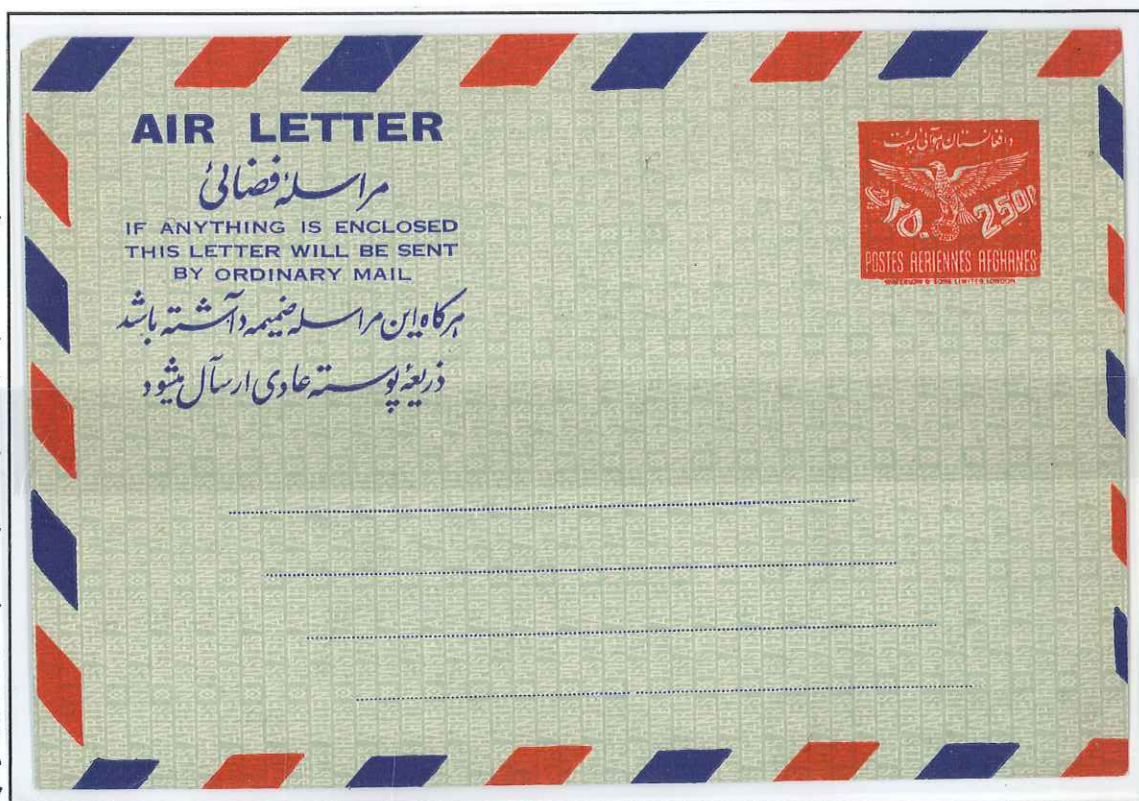 AIR LETTER
مراسلهٔ فضائی
IF ANYTHING IS ENCLOSED
THIS LETTER WILL BE SENT
BY ORDINARY MAIL
هرگاه این مراسله ضمیمه داشته باشد
ذریعهٔ پوسته عادی ارسال میشود
د افغانستان هوائی پست
۲۵۰ 250 P
POSTES AERIENNES AFGHANES
WATERLOW & SONS LIMITED LONDON